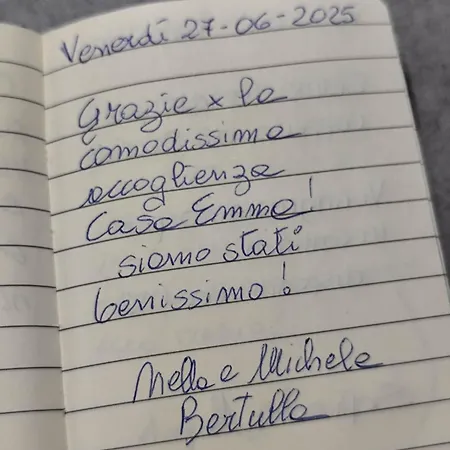 Venerdí 27-06-2025
Grazie x la
comodissima
accoglienza
Casa Emma!
siamo stati
benissimo!
Mella e Michele
Bertulla